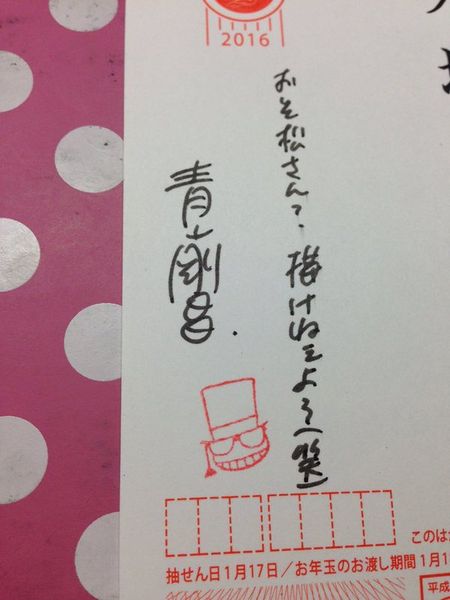 2016
おそ松さん?
描けねェよそ(笑)
青山剛昌.
このはが
抽せん日1月17日/お年玉のお渡し期間 1月1
平成